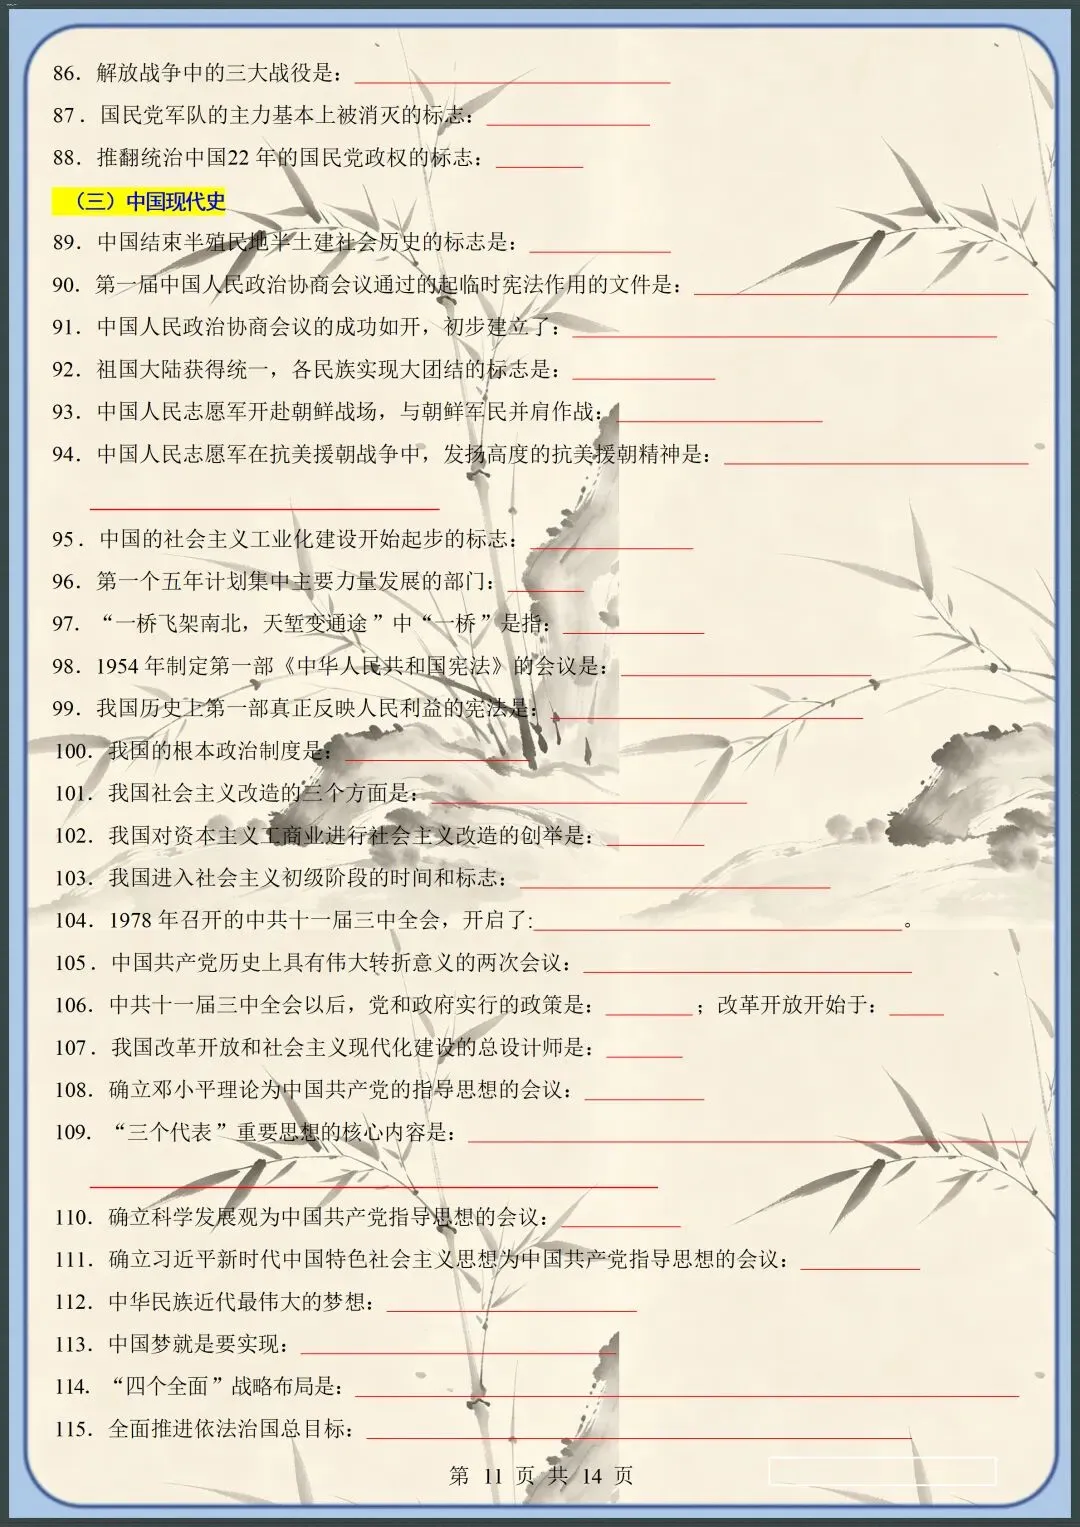 86．解放战争中的三大战役是：
87．国民党军队的主力基本上被消灭的标志：
88．推翻统治中国22 年的国民党政权的标志：
（三）中国现代史
89．中国结束半殖民地半土建社会历史的标志是：
90．第一届中国人民政治协商会议通过的起临时宪法作用的文件是：
91．中国人民政治协商会议的成功如开，初步建立了：
92．祖国大陆获得统一，各民族实现大团结的标志是：
93．中国人民志愿军开赴朝鲜战场，与朝鲜军民并肩作战：
94．中国人民志愿军在抗美援朝战争中，发扬高度的抗美援朝精神是：
95．中国的社会主义工业化建设开始起步的标志：
96．第一个五年计划集中主要力量发展的部门：
97．“一桥飞架南北，天堑变通途”中“一桥”是指：
98．1954 年制定第一部《中华人民共和国宪法》的会议是：
99．我国历史上第一部真正反映人民利益的宪法是：
100．我国的根本政治制度是：
101．我国社会主义改造的三个方面是：
102．我国对资本主义工商业进行社会主义改造的创举是：
103．我国进入社会主义初级阶段的时间和标志：
104．1978 年召开的中共十一届三中全会，开启了:。
105．中国共产党历史上具有伟大转折意义的两次会议：
106．中共十一届三中全会以后，党和政府实行的政策是：；改革开放开始于：
107．我国改革开放和社会主义现代化建设的总设计师是：
108．确立邓小平理论为中国共产党的指导思想的会议：
109．“三个代表”重要思想的核心内容是：
110．确立科学发展观为中国共产党指导思想的会议：
111．确立习近平新时代中国特色社会主义思想为中国共产党指导思想的会议：
112．中华民族近代最伟大的梦想：
113．中国梦就是要实现：
114．“四个全面”战略布局是：
115．全面推进依法治国总目标：
第 11 页 共 14 页